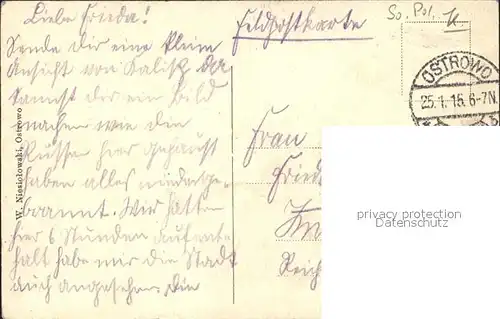 Liebe Frieda!
Sende dir eine kleine
Ansicht von Kalisz da
kannst der ein Bild
machen wie die
Russen hier gehaust
haben alles niederge-
brannt. Wir hatten
hier 6 Stunden Aufent-
halt habe mir die Stadt
auch angesehen. Die
W. Niesiołowski, Ostrowo
Feldpostkarte
So. Pol.
OSTROWO
25.1.15. 6-7N
Frau
Fried
Reich
privacy protection
Datenschutz